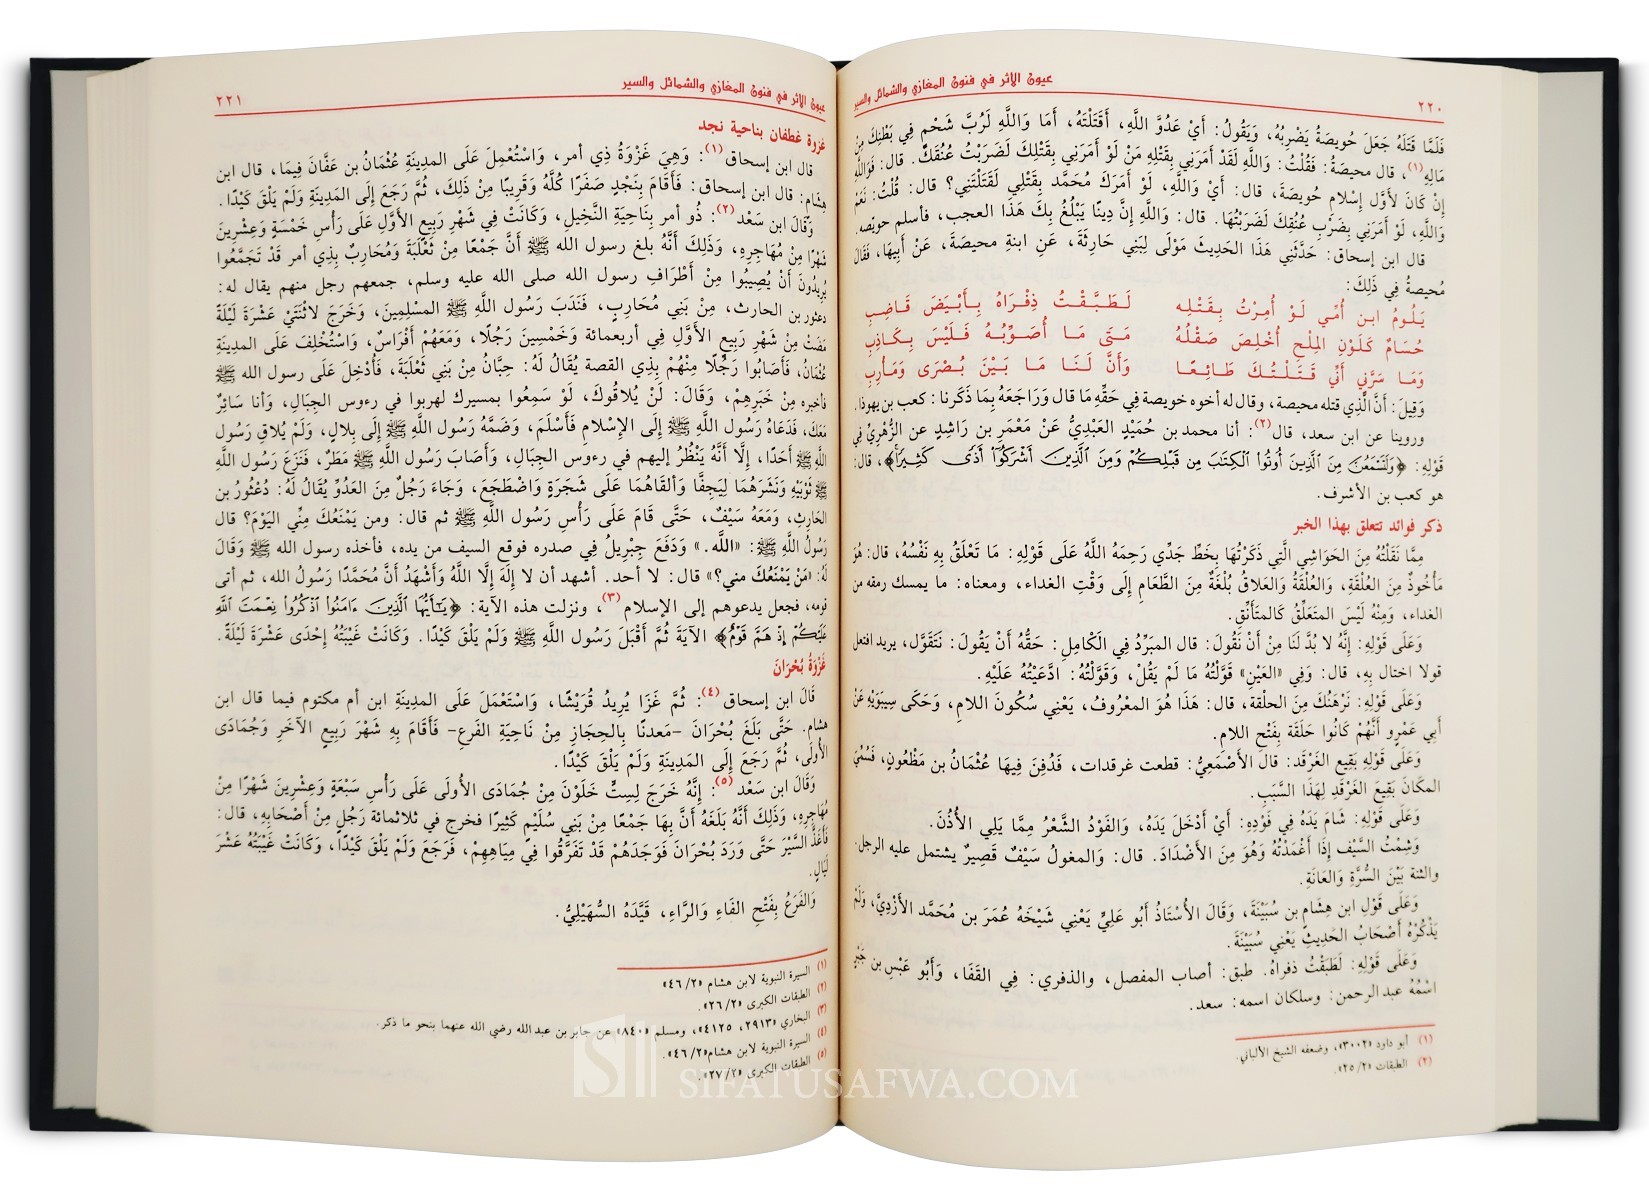 عيون الاثر في فنون المغازي والشمائل والسير
٢٢٠
فَلَمَّا قَتَلَهُ جَعَلَ حُويصَةُ يَضْرِبُهُ، وَيَقُولُ: أَيْ عَدُوَّ اللَّهِ، أَقَتَلْتَهُ، أَمَا وَاللَّهِ لَرُبَّ شَحْمٍ فِي بَطْنِكَ مِنْ
مَالِهِ(١)، قال محيصة: فَقُلْتُ: وَاللَّهِ لَقَدْ أَمَرَنِي بِقَتْلِهِ مَنْ لَوْ أَمَرَنِي بِقَتْلِكَ لَضَرَبْتُ عُنُقَكَ. قال: فَوَاللَّهِ
إِنْ كَانَ لأَوَّل إِسْلام حُويصَةَ، قال: أَيْ وَاللَّهِ، لَوْ أَمَرَكَ مُحَمَّد بِقَتْلِي لَقَتَلْتَنِي؟ قال: قُلْتُ: نَعَمْ
وَاللَّهِ، لَوْ أَمَرَنِي بِضَرْبِ عُنُقِكَ لَضَرَبْتُهَا. قال: وَاللَّهِ إِنَّ دِينًا يَبْلُغُ بِكَ هَذَا العجب، فأسلم حويصه.
قال ابن إسحاق: حَدَّثَنِي هَذَا الْحَدِيثَ مَوْلًى لِبَنِي حَارِثَةَ، عَنِ ابنةِ محيصَةَ، عَنْ أَبِيهَا، فَقَالَ
مُحيصةُ فِي ذَلِكَ:
يَلُومُ ابن أُمِّي لَوْ أُمِرْتُ بِقَتْلِهِ لَطَبَّقْتُ ذِفْرَاهُ بِأَبْيَضَ قَاضِبِ
حُسَامٌ كَلَوْنِ المِلْحِ أُخْلِصَ صَقْلُهُ مَتَى مَا أُصَوِّبُهُ فَلَيْسَ بِكَاذِبِ
وَمَا سَرَّنِي أَنِّي قَتَلْتُكَ طَائِعًا وَأَنَّ لَنَا مَا بَيْنَ بُصْرَى وَمَأْرِبِ
وَقِيلَ: أَنَّ الَّذِي قتله محيصة، وقال له أخوه حويصة فِي حَقِّهِ مَا قال وَرَاجَعَهُ بِمَا ذَكَرنا: كعب بن يهوذا.
وروينا عن ابن سعد، قال(٢): أنا محمد بن حُمَيْدٍ العَبْدِيُّ عَنْ مَعْمَرِ بن رَاشِدٍ عن الزُّهْرِيِّ فِي
قَوْلِهِ: ﴿وَلَتَسْمَعُنَّ مِنَ الَّذِينَ أُوتُوا الْكِتَابَ مِن قَبْلِكُمْ وَمِنَ الَّذِينَ أَشْرَكُوا أَذًى كَثِيرًا﴾، قال:
هو كعب بن الأشرف.
ذكر فوائد تتعلق بهذا الخبر
مِمَّا نَقَلْتُهُ مِنَ الحَوَاشِي الَّتِي ذَكَرْتُهَا بِخَطِّ جَدِّي رَحِمَهُ اللَّهُ عَلَى قَوْلِهِ: مَا تَعَلَّقُ بِهِ نَفْسُهُ، قال: هُوَ
مَأْخُوذٌ مِنَ العُلْقَةِ، وَالعُلْقَةُ وَالعَلاقُ بُلْغَةٌ مِنَ الطَّعَامِ إِلَى وَقْتِ الغداء، ومعناه: ما يمسك رمقه من
الغداء، وَمِنْهُ لَيْسَ المتعَلِّقُ كَالمتَأَنِّقِ.
وَعَلَى قَوْلِهِ: إِنَّهُ لا بُدَّ لَنَا مِنْ أَنْ نَقُولَ: قال المبَرِّدُ فِي الكَامِلِ: حَقُّهُ أَنْ يَقُولَ: نَتَقَوَّل، يريد افتعل
قولا احتال بِهِ، قال: وَفِي «العَيْنِ» قَوَّلْتُهُ مَا لَمْ يَقُلْ، وَقَوَّلْتُهُ: ادَّعَيْتُهُ عَلَيْهِ.
وَعَلَى قَوْلِهِ: نَرْهَنُكَ مِنَ الحلْقة، قال: هَذَا هُوَ المعْرُوفُ، يَعْنِي سُكُونَ اللام، وَحَكَى سِيبَوَيْهِ عَنْ
أَبِي عَمْرٍو أَنَّهُمْ كَانُوا حَلَقَة بِفَتْحِ اللام.
وَعَلَى قَوْلِهِ بَقِيعِ الغَرْقَد: قال الأَصْمَعِيُّ: قطعت غرقدات، فَدُفِنَ فِيهَا عُثْمَانُ بن مَظْعُونٍ، فَسُمِّيَ
المكَانُ بَقِيعَ الغَرْقَدِ لِهَذَا السَّبَبِ.
وَعَلَى قَوْلِهِ: شَامَ يَدَهُ فِي فَوْدِهِ: أَيْ أَدْخَلَ يَدَهُ، وَالفَوْدُ الشَّعْرُ مِمَّا يَلِي الأُذُنَ.
وَشِمْتُ السَّيْفَ إِذَا أَغْمَدْتُهُ وَهُوَ مِنَ الأَضْدَادِ. قال: وَالمغولُ سَيْفٌ قَصِيرٌ يشتمل عليه الرجل.
والثنة بَيْنَ السُّرَّةِ وَالعَانَةِ.
وَعَلَى قَوْلِ ابن هِشَامٍ بن سُبَيْنَةَ، وَقَالَ الأُسْتَاذُ أَبُو عَلِيٍّ يَعْنِي شَيْخَهُ عُمَرَ بن مُحَمَّد الأَزْدِيَّ، وَلَمْ
يَذْكُرْهُ أَصْحَابُ الحَدِيثِ يَعْنِي سُبَيْنَةَ.
وَعَلَى قَوْلِهِ: لَطَبَّقْتُ ذفراهُ. طبق: أصاب المفصل، والذفري: فِي القَفَا، وَأَبُو عَبْسِ بن جَبْرٍ
اسْمُهُ عبد الرحمن: وسلكان اسمه: سعد.
(١) أبو داود «٣٠٠٢»، وضعفه الشيخ الألباني.
(٢) الطبقات «٢٥/٢».
عيون الاثر في فنون المغازي والشمائل والسير
٢٢١
غزوة غطفان بناحية نجد
قال ابن إسحاق(١): وَهِيَ غَزْوَةُ ذِي أمر، وَاسْتُعْمِلَ عَلَى المدِينَةِ عُثْمَانُ بن عَفَّانَ فِيمَا، قال ابن
هِشَام: قال ابن إسحاق: فَأَقَامَ بِنَجْدٍ صَفَرًا كُلَّهُ وَقَرِيبًا مِنْ ذَلِكَ، ثُمَّ رَجَعَ إِلَى المَدِينَةِ وَلَمْ يَلْقَ كَيْدًا.
وَقَالَ ابن سَعْد(٢): ذُو أمر بِنَاحِيَةِ النَّخِيلِ، وَكَانَتْ فِي شَهْرِ رَبِيعٍ الأَوَّلِ عَلَى رَأْسِ خَمْسَةٍ وَعِشْرِينَ
شَهْرًا مِنْ مُهَاجِرِهِ، وَذَلِكَ أَنَّهُ بلغ رسول الله ﷺ أَنَّ جَمْعًا مِنْ ثَعْلَبَةَ وَمُحَارِبٌ بِذِي أمر قَدْ تَجَمَّعُوا
يُرِيدُونَ أَنْ يُصِيبُوا مِنْ أَطْرَافِ رسول الله صلى الله عليه وسلم، جمعهم رجل منهم يقال له:
دعثور بن الحارث، مِنْ بَنِي مُحَارِبٍ، فَنَدَبَ رَسُولُ اللَّهِ ﷺ المسْلِمِينَ، وَخَرَجَ لاثْنَتَيْ عَشْرَةَ لَيْلَةً
مَضَتْ مِنْ شَهْرِ رَبِيعٍ الأَوَّلِ فِي أربعمائة وَخَمْسِينَ رَجُلًا، وَمَعَهُمْ أَفْرَاسٌ، وَاسْتَخْلِفَ عَلَى المدِينَةِ
عُثْمَانُ، فَأَصَابُوا رَجُلًا مِنْهُمْ بِذِي القصة يُقَالُ لَهُ: حِبَّانُ مِنْ بَنِي ثَعْلَبَةَ، فَأُدْخِلَ عَلَى رسول الله ﷺ
فأخبره مِنْ خَبَرِهِمْ، وَقَالَ: لَنْ يُلاقُوكَ، لَوْ سَمِعُوا بمسيرك لهربوا في رءوس الجِبَالِ، وَأنا سَائِرٌ
مَعَكَ، فَدَعَاهُ رَسُولُ اللَّهِ ﷺ إِلَى الإِسْلامِ فَأَسْلَمَ، وَضَمَّهُ رَسُول اللَّهِ ﷺ إِلَى بِلالٍ، وَلَمْ يُلاقِ رَسُول
اللَّهِ ﷺ أَحَدًا، إِلَّا أَنَّهُ يَنْظُرُ إليهم في رءوس الجِبَالِ، وَأَصَابَ رَسُول اللَّهِ ﷺ مَطَرٌ، فَنَزَعَ رَسُول اللَّهِ
ﷺ ثَوْبَيْهِ وَنَشَرَهُمَا لِيَجِفَّا وَأَلْقَاهُمَا عَلَى شَجَرَةٍ وَاضْطَجَعَ، وَجَاءَ رَجُلٌ مِنَ العَدُوِّ يُقَالُ لَهُ: دُعْثُورُ بن
الحَارِثِ، وَمَعَهُ سَيْفٌ، حَتَّى قَامَ عَلَى رَأْسِ رَسُول اللَّهِ ﷺ ثم قال: ومن يَمْنَعُكَ مِنِّي اليَوْمَ؟ قال
رَسُولُ اللَّهِ ﷺ: «اللَّه.» وَدَفَعَ جِبْرِيلُ فِي صدره فوقع السيف من يده، فأخذه رسول الله ﷺ وَقَالَ
لَهُ: «مَنْ يَمْنَعُكَ مني؟» قال: لا أحد. أشهد أن لا إِلَهَ إِلَّا اللَّهُ وَأَشْهَدُ أَنَّ مُحَمَّدًا رَسُولُ الله، ثم أتى
قومه، فجعل يدعوهم إلى الإسلام(٣)، ونزلت هذه الآية: ﴿يَا أَيُّهَا الَّذِينَ ءَامَنُوا اذْكُرُوا نِعْمَتَ اللَّهِ
عَلَيْكُمْ إِذْ هَمَّ قَوْمٌ﴾ الآيَةَ ثُمَّ أَقْبَلَ رَسُول اللَّهِ ﷺ وَلَمْ يَلْقَ كَيْدًا. وَكَانَتْ غَيْبَتُهُ إِحْدَى عَشْرَةَ لَيْلَةً.
غَزْوَةُ بُحْرَانَ
قَالَ ابن إسحاق(٤): ثُمَّ غَزَا يُرِيدُ قُرَيْشًا، وَاسْتَعْمَلَ عَلَى المدِينَةِ ابن أم مكتوم فيما قال ابن
هشام. حَتَّى بَلَغَ بُحْرَانَ -مَعدنًا بِالحِجَازِ مِنْ نَاحِيَةِ الفَرعِ- فَأَقَامَ بِهِ شَهْرَ رَبِيعٍ الآخر وَجُمَادَى
الأُولَى، ثُمَّ رَجَعَ إِلَى المَدِينَةِ وَلَمْ يَلْقَ كَيْدًا.
وَقَالَ ابن سَعْد(٥): إِنَّهُ خَرَجَ لِسِتٍّ خَلَوْنَ مِنْ جُمَادَى الأُولَى عَلَى رَأْسِ سَبْعَةٍ وَعِشْرِينَ شَهْرًا مِنْ
مُهَاجِرِهِ، وَذَلِكَ أَنَّهُ بَلَغَهُ أَنَّ بِهَا جَمْعًا مِنْ بَنِي سُلَيْمٍ كَثِيرًا فخرج في ثلاثمائة رَجُلٍ مِنْ أَصْحَابِهِ، قال:
فَأَغَذَّ السَّيْرَ حَتَّى وَرَدَ بُحْرَانَ فَوَجَدَهُمْ قَدْ تَفَرَّقُوا فِي مِيَاهِهِمْ، فَرَجَعَ وَلَمْ يَلْقَ كَيْدًا، وَكَانَتْ غَيْبَتُهُ عَشْرَ
لَيَالٍ.
وَالفَرَعُ بِفَتْحِ الفَاءِ وَالرَّاءِ، قَيَّدَهُ السُّهَيْلِيُّ.
(١) السيرة النبوية لابن هشام «٤٦/٢»
(٢) الطبقات الكبرى «٢٦/٢».
(٣) البخاري «٢٩١٣، ٤١٢٥»، ومسلم «٨٤٠» عن جابر بن عبد الله رضي الله عنهما بنحو ما ذكر.
(٤) السيرة النبوية لابن هشام«٤٦/٢».
(٥) الطبقات الكبرى «٢٧/٢».
SIFATUSAFWA.COM